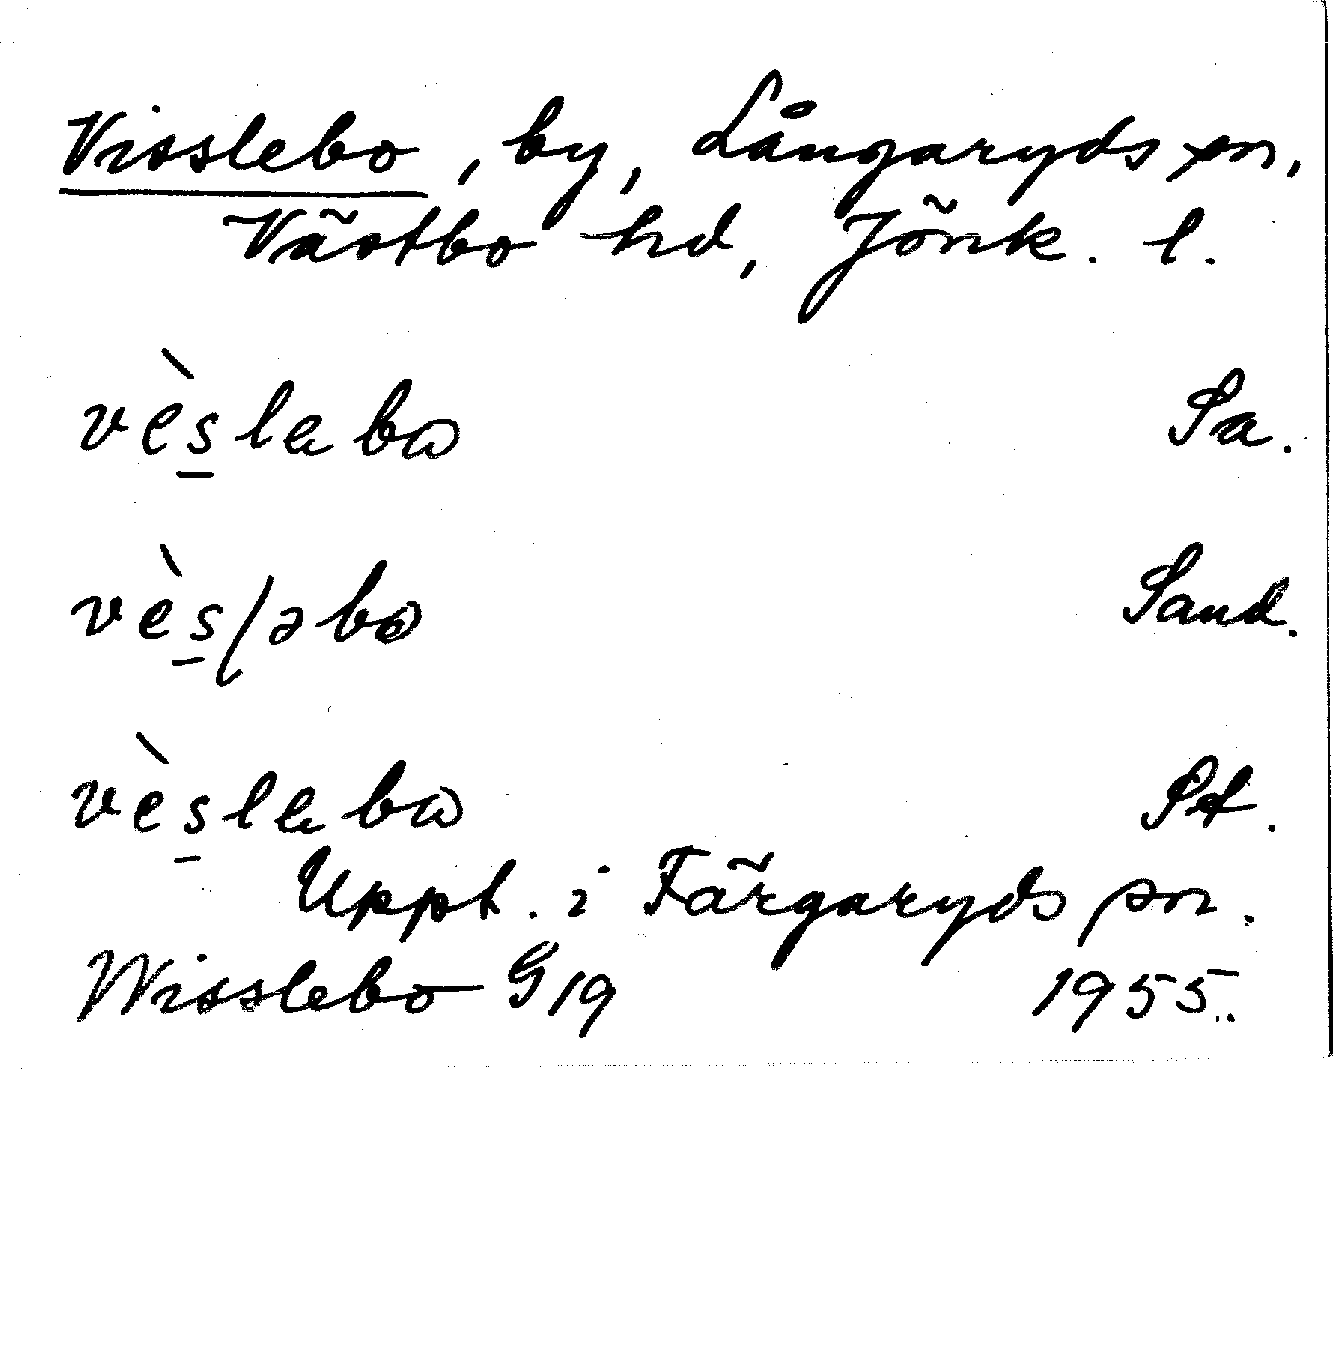 Visslebo, by, Långaryds sn,
Västbo hd, Jönk. l.
vès̲lebɷ Sa.
vès̲ləbɷ Sand.
vès̲lebɷ St.
Uppt. i Färgaryds sn.
Wisslebo G19 1955.